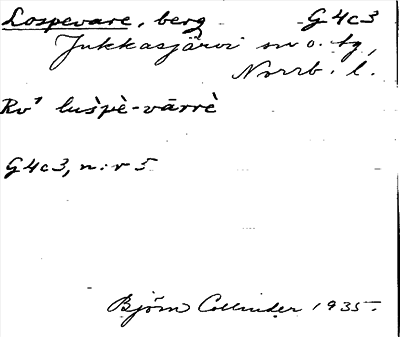 Lospevare, berg G4c3
Jukkasjärvi sn o. tg,
Norrb. l.
Rv⁹ lušpè-vārrè
G4c3, n:r 5
Björn Collinder 1935.